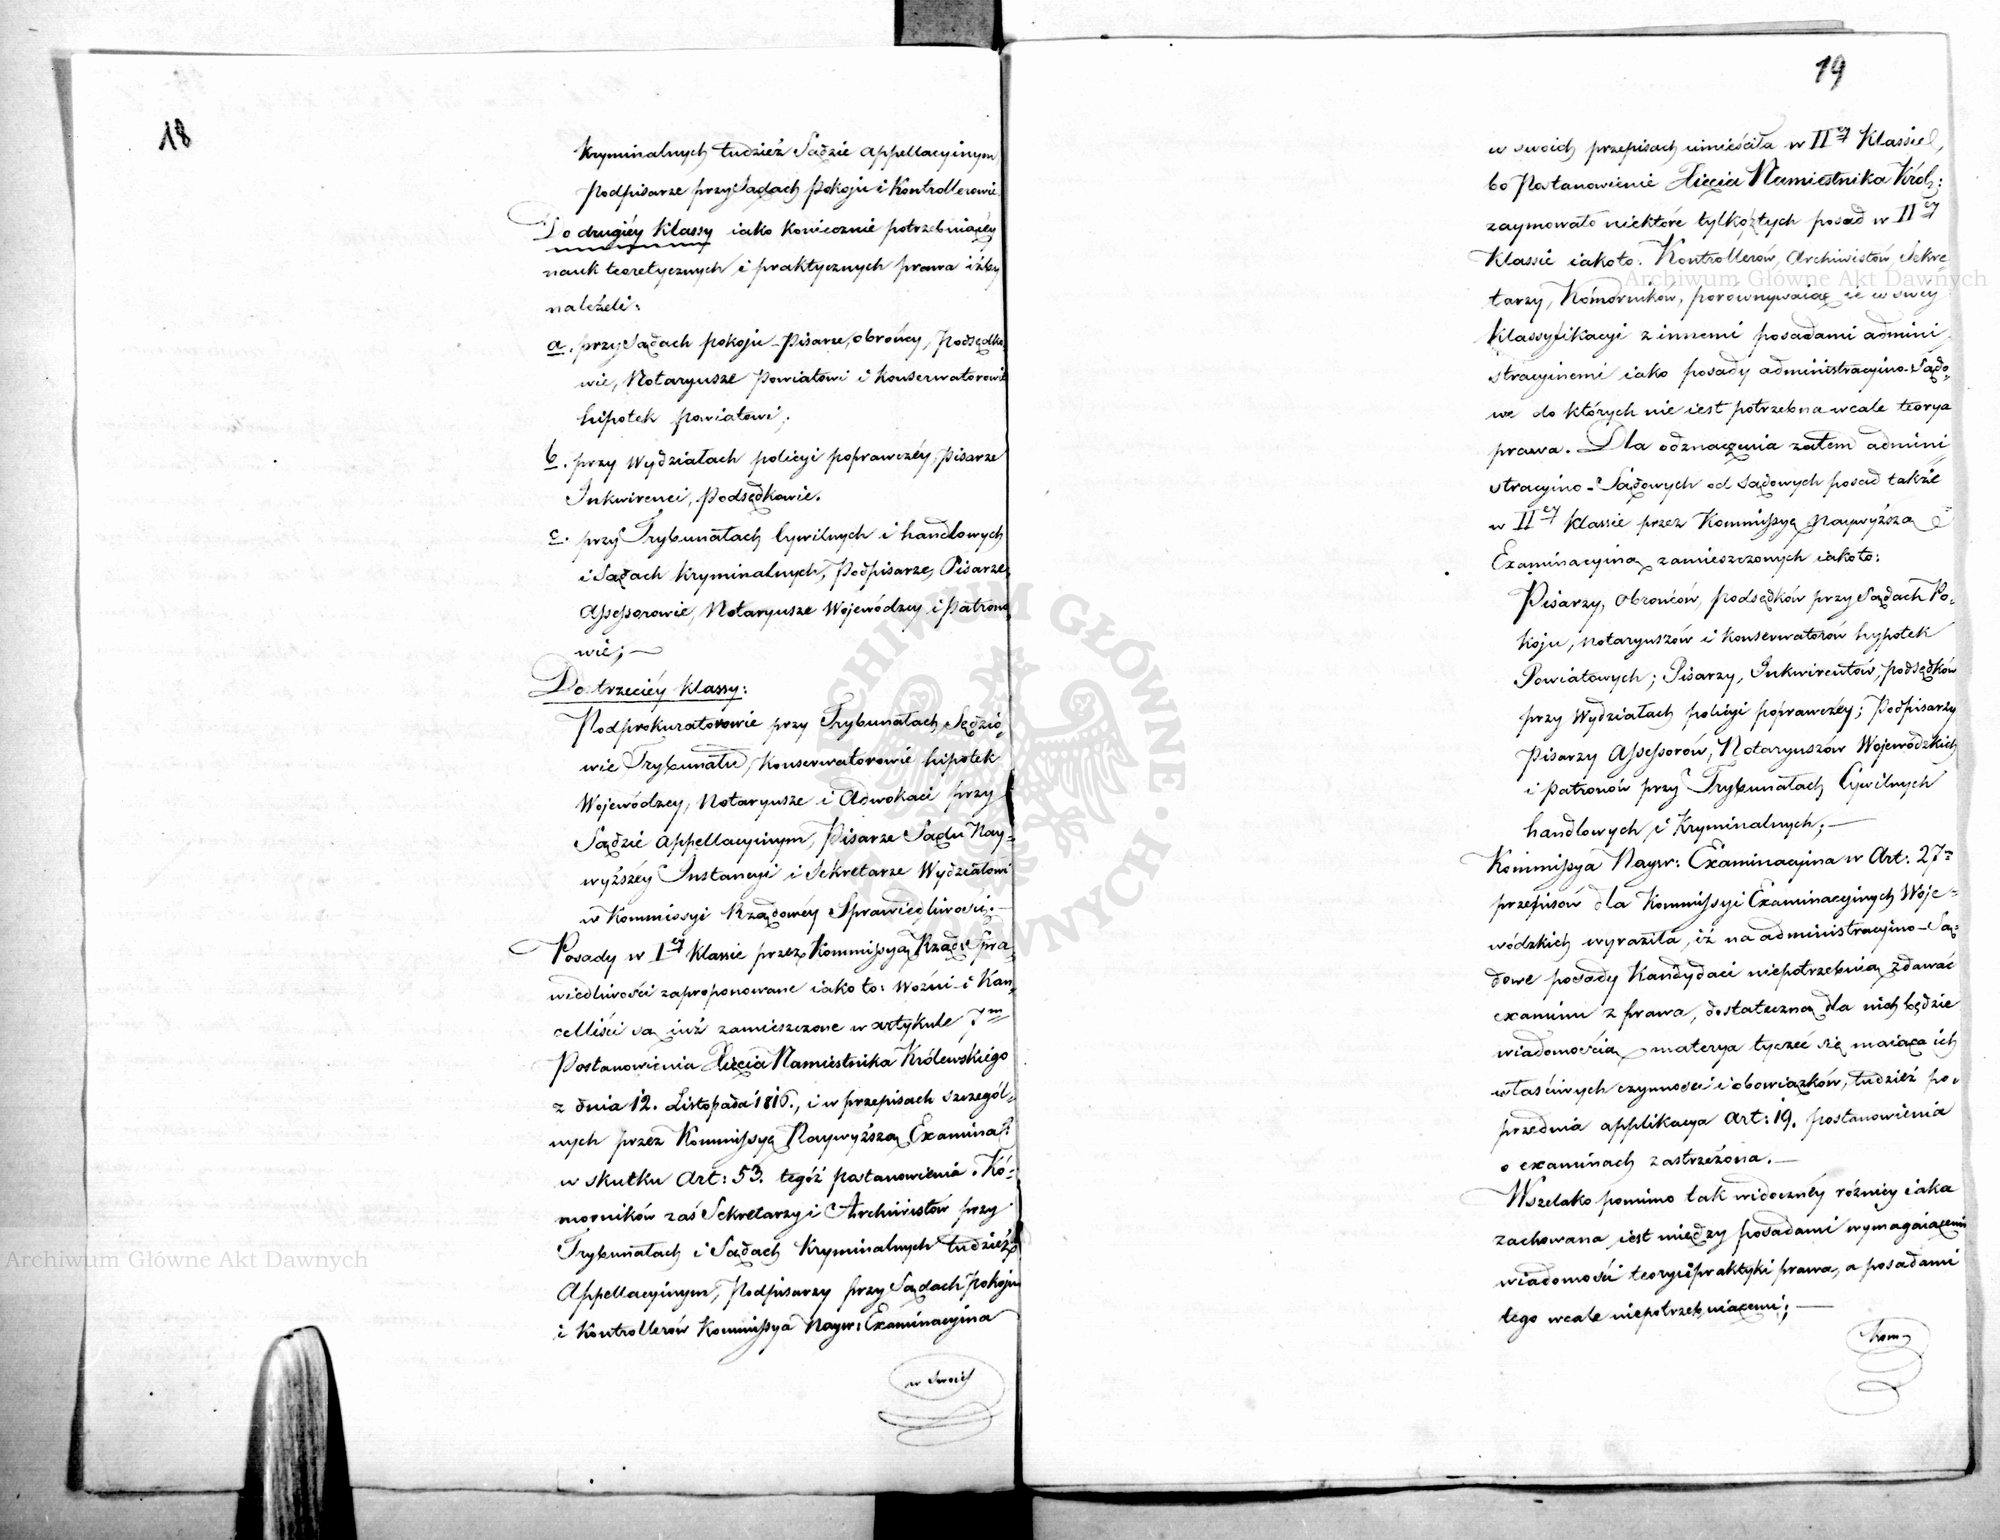 18
kryminalnych tudzież Sądzie Appellacyinym
Podpisarze przy Sądach Pokoju i Kontrollerowie.
Do drugiéy klassy iako koniecznie potrzebuiącéy
nauk teoretycznych i praktycznych prawa iżby
należeli:
a. przy Sądach pokoju Pisarze, obrońcy, Podsędko
wie, Notaryusze Powiatowi i Konserwatorowie
hipotek powiatowi;
b. przy Wydziałach policyi poprawczéy, Pisarze
Inkwirenci, Podsędkowie.
c. przy Trybunałach Cywilnych i handlowych
i Sądach kryminalnych, Podpisarze, Pisarze,
Assessorowie, Notaryusze Wojewódzcy i Patrono
wie;—
Do trzeciéy klassy:
Podprokuratorowie przy Trybunałach, Sędzio=
wie Trybunału, Konserwatorowie hipotek
Wojewódzcy, Notaryusze i Adwokaci przy
Sądzie Appellacyinym, Pisarze Sądu Nay=
wyższéy Instancyi i Sekretarze Wydziałowi
w Kommissyi Rządowéy Sprawiedliwości.—
Posady w I ey Klassie przez Kommissyą Rząd: Spra=
wiedliwości zaproponowane iako to: Woźni i Kan=
celliści są iuż zamieszczone w artykule 7m
Postanowienia Xięcia Namiestnika Królewskiego
z dnia 12. Listopada 1816., i w przepisach szczegól=
nych przez Kommissyą Naywyższą Examina:
w skutku Art: 53. tegóż postanowienia. Kó=
morników zaś Sekretarzy i Archiwistów przy
Trybunałach i Sądach Kryminalnych tudzież
Appellacyinym, Podpisarzy przy Sądach Pokoju
i Kontrollerów Kommissya Nayw: Examinacyina
w swoich
19
w swoich przepisach umieściła w II ey Klassie,
bo Postanowienie Xięcia Namiestnika Król:
zaymowało niektóre tylko z tych posad w II ey
Klassie iako to: Kontrollerów, Archiwistów, Sekre=
tarzy, Kómorników, porównywaiąc ie w swey
Klassyfikacyi z innemi posadami admini=
stracyinemi iako posady administracyino-Sądo=
we do których nie iest potrzebna wcale teorya
prawa. Dla odznaczenia zatem admini=
stracyino-Sądowych od Sądowych posad także
w II ey Klassie przez Kommissyą Naywyższą
Examinacyiną zamieszczonych iako to:
Pisarzy, Obrońców, Podsędków przy Sądach Po=
koju, Notaryuszów i Konserwatorów hypotek
Powiatowych; Pisarzy, Inkwirentów, Podsędków
przy Wydziałach policyi poprawczéy; Podpisarzy
Pisarzy Assessorów, Notaryuszów Wojewódzkich
i Patronów przy Trybunałach Cywilnych
handlowych, i Kryminalnych;—
Kommissya Nayw: Examinacyina w Art: 27m
przepisów dla Kommissyi Examinacyinych Woje=
wódzkich wyraziła, iż na administracyino-Są=
dowe posady Kandydaci niepotrzebuią zdawać
examinu z prawa, dostateczną dla nich będzie
wiadomością materya tyczeć się maiąca ich
właściwych czynności i obowiązków, tudzież po=
przednia applikacya Art: 19. postanowienia
o examinach zastrzeżona.—
Wszelako pomimo tak widocznéy różnicy iaka
zachowana iest między posadami wymagaiącemi
wiadomości teoryi i praktyki prawa, a posadami
tego wcale niepotrzebuiącemi;—
Kom
Archiwum Główne Akt Dawnych
Archiwum Główne Akt Dawnych